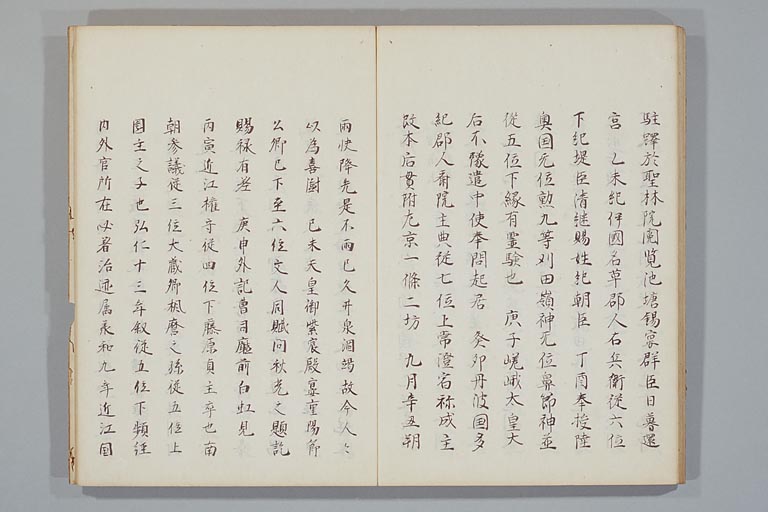 駐蹕於聖林院園覧池塘錫宴群臣日暮還
宮 乙未紀伊國名草郡人右兵衛従六位
下紀堤臣清継賜姓紀朝臣 丁酉奉授陸
奥国无位勲九等刈田嶺神无位鼻節神並
従五位下縁有霊験也 庚子嵯峨太皇大
后不豫遣中使奉問起居 癸卯丹波国多
紀郡人斎院主典従七位上常澄宿祢成主
改本居貫附左京一條二坊 九月辛丑朔
雨快降先是不雨已久井泉涸竭故令人々
以為喜謝 己未天皇御紫宸殿宴重陽節
公卿已下至六位文人同賦問秋光之題訖
賜禄有差 庚申外記曹司廳前白虹見
丙寅近江權守従四位下藤原貞主卒也南
朝参議従三位大蔵卿楓麿之孫従五位上
園主之子也弘仁十三年叙従五位下頻経
内外官所在必着治迹属承和九年近江国